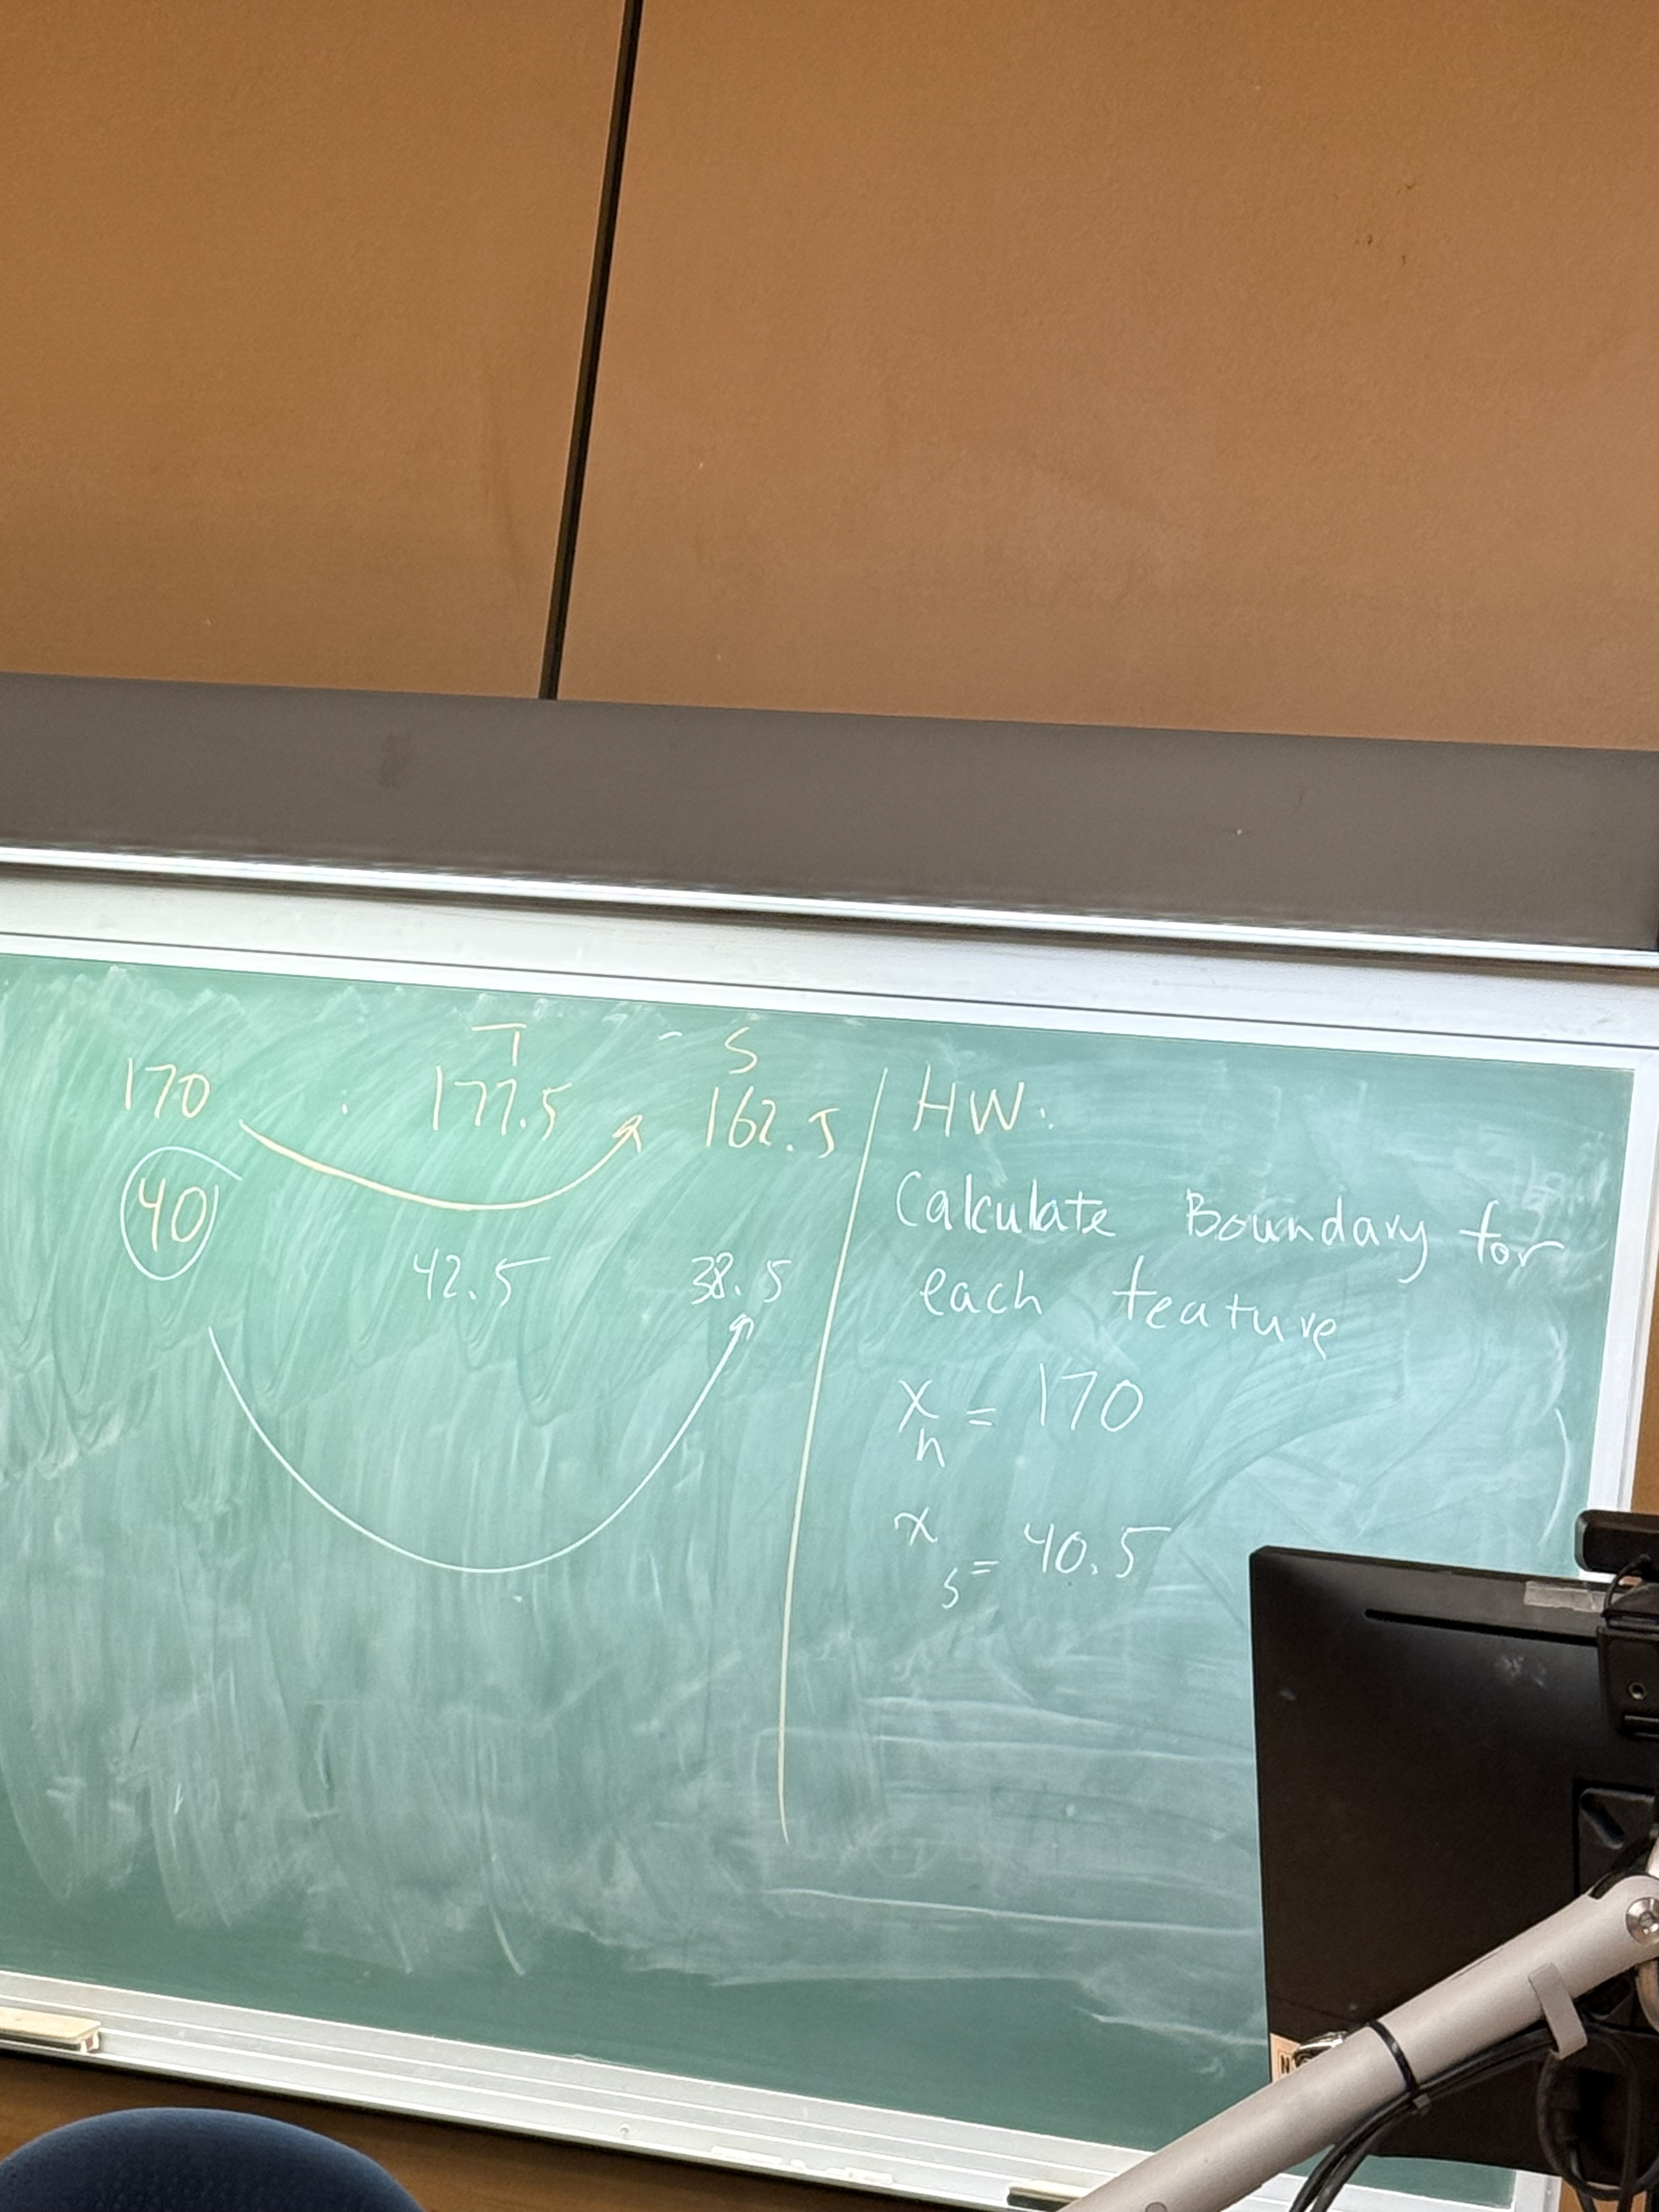 T - S
170 . 177.5 162.5
40
42.5 38.5
HW:
Calculate Boundary for
each feature
x h = 170
x s = 40.5